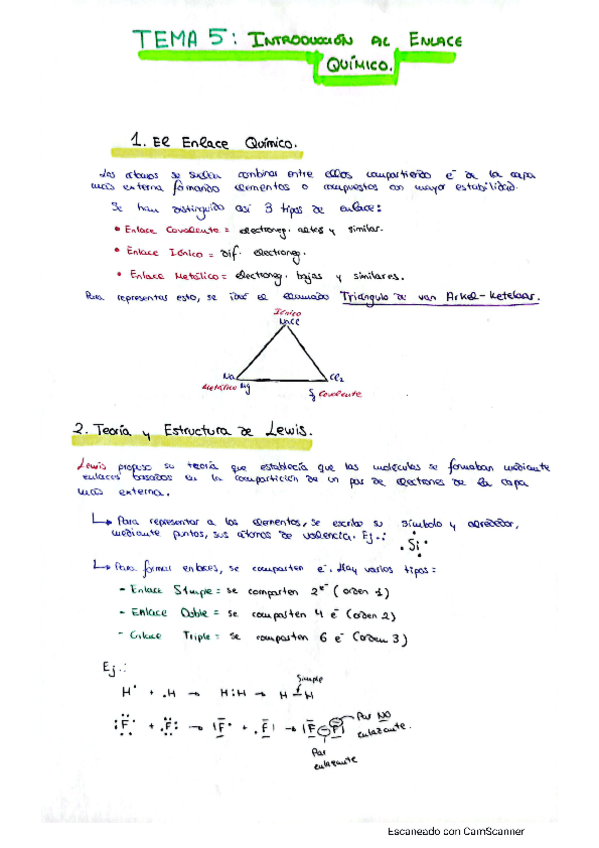 TEMA 5: INTRODUCCIÓN AL ENLACE
QUÍMICO.
1. El Enlace Químico.
Los átomos se suelen combinar entre ellos compartiendo e⁻ de la capa
más externa formando elementos o compuestos con mayor estabilidad.
Se han distinguido así 3 tipos de enlace:
• Enlace Covalente = electroneg. altas y similar.
• Enlace Iónico = dif. electroneg.
• Enlace Metálico = electroneg. bajas y similares.
Para representar esto, se ideó el llamado Triángulo de van Arkel-Ketelaar.
Iónico
NaCl
Na
Cl₂
Metálico Mg
S₈ Covalente
2. Teoría y Estructura de Lewis.
Lewis propuso su teoría que establecía que las moléculas se formaban mediante
enlaces basados en la compartición de un par de electrones de la capa
más externa.
↳ Para representar a los elementos, se escribe su símbolo y alrededor,
mediante puntos, sus átomos de valencia. Ej.: ·Si·
↳ Para formar enlaces, se comparten e⁻. Hay varios tipos:
- Enlace Simple = se comparten 2e⁻ (orden 1)
- Enlace Doble = se comparten 4 e⁻ (orden 2)
- Enlace Triple = se comparten 6 e⁻ (orden 3)
Ej.:
Simple
H· + ·H → H:H → H–H
:F· + ·F: → |F· + ·F| → |F–F| Par NO
enlazante.
Par
enlazante
Escaneado con CamScanner